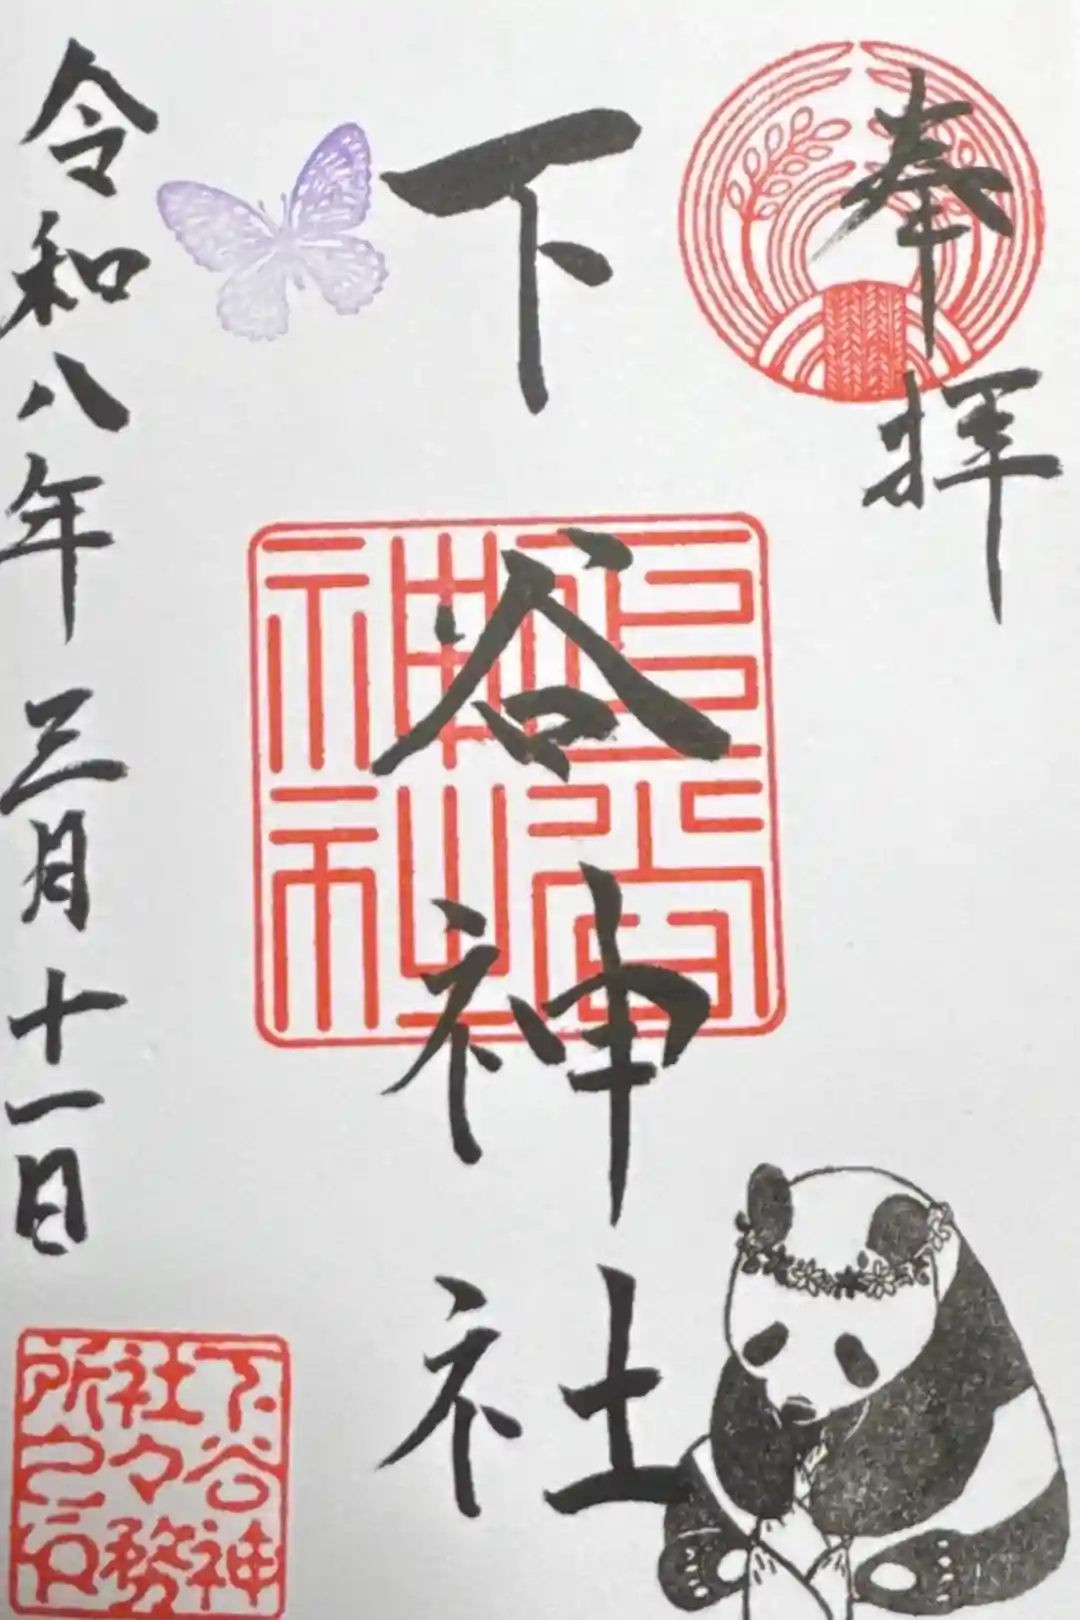 奉拝
下谷神社
令和八年三月十一日
下谷神
社々務
所之印